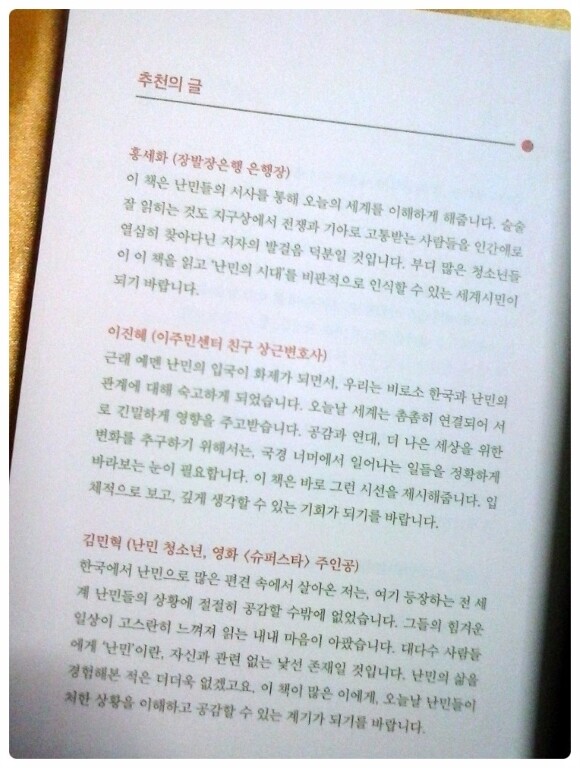 추천의 글
홍세화 (장발장은행 은행장)
이 책은 난민들의 서사를 통해 오늘의 세계를 이해하게 해줍니다. 술술
잘 읽히는 것도 지구상에서 전쟁과 기아로 고통받는 사람들을 인간애로
열심히 찾아다닌 저자의 발걸음 덕분일 것입니다. 부디 많은 청소년들
이 이 책을 읽고 '난민의 시대'를 비판적으로 인식할 수 있는 세계시민이
되기 바랍니다.
이진혜 (이주민센터 친구 상근변호사)
근래 예멘 난민의 입국이 화제가 되면서, 우리는 비로소 한국과 난민의
관계에 대해 숙고하게 되었습니다. 오늘날 세계는 촘촘히 연결되어 서
로 긴밀하게 영향을 주고받습니다. 공감과 연대, 더 나은 세상을 위한
변화를 추구하기 위해서는, 국경 너머에서 일어나는 일들을 정확하게
바라보는 눈이 필요합니다. 이 책은 바로 그런 시선을 제시해줍니다. 입
체적으로 보고, 깊게 생각할 수 있는 기회가 되기를 바랍니다.
김민혁 (난민 청소년, 영화 〈슈퍼스타〉 주인공)
한국에서 난민으로 많은 편견 속에서 살아온 저는, 여기 등장하는 전 세
계 난민들의 상황에 절절히 공감할 수밖에 없었습니다. 그들의 힘겨운
일상이 고스란히 느껴져 읽는 내내 마음이 아팠습니다. 대다수 사람들
에게 '난민'이란, 자신과 관련 없는 낯선 존재일 것입니다. 난민의 삶을
경험해본 적은 더더욱 없겠고요. 이 책이 많은 이에게, 오늘날 난민들이
처한 상황을 이해하고 공감할 수 있는 계기가 되기를 바랍니다.